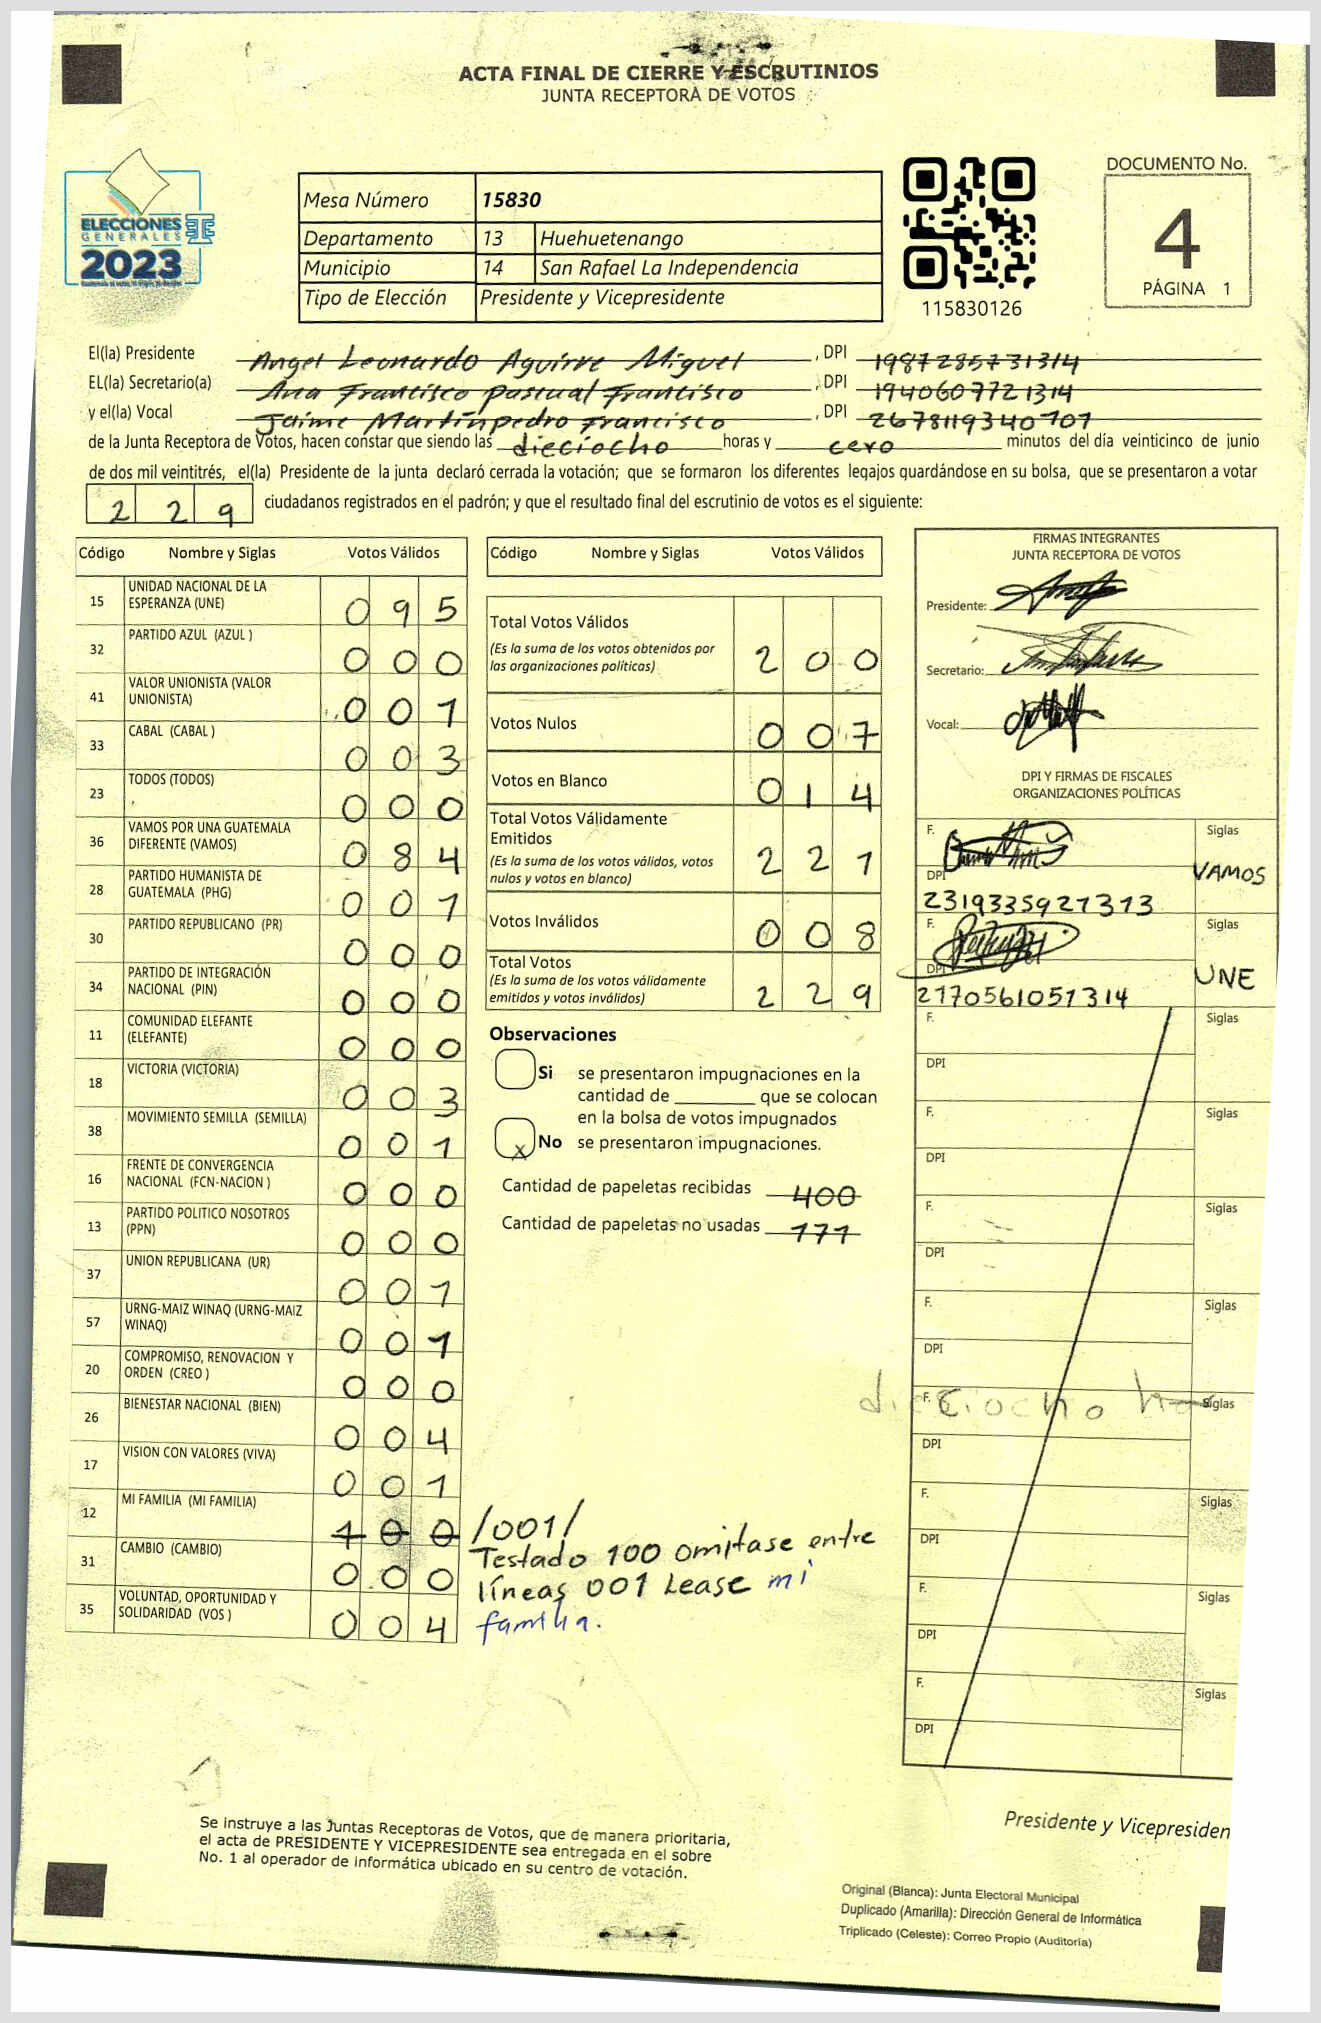 ACTA FINAL DE CIERRE Y ESCRUTINIOS
JUNTA RECEPTORA DE VOTOS
ELECCIONES
GENERALES
2023
Mesa Número 15830
Departamento 13 Huehuetenango
Municipio 14 San Rafael La Independencia
Tipo de Elección Presidente y Vicepresidente
115830126
DOCUMENTO No.
4
PÁGINA 1
El(la) Presidente Angel Leonardo Aguirre Miguel , DPI 1987285731314
EL(la) Secretario(a) Ana Francisco Pascual Francisco , DPI 1940607721314
y el(la) Vocal Jaime Martinpedro Francisco , DPI 2678119340707
de la Junta Receptora de Votos, hacen constar que siendo las dieciocho horas y cero minutos del día veinticinco de junio
de dos mil veintitrés, el(la) Presidente de la junta declaró cerrada la votación; que se formaron los diferentes legajos guardándose en su bolsa, que se presentaron a votar
2 2 9 ciudadanos registrados en el padrón; y que el resultado final del escrutinio de votos es el siguiente:
Código Nombre y Siglas Votos Válidos
15 UNIDAD NACIONAL DE LA ESPERANZA (UNE) 0 9 5
32 PARTIDO AZUL (AZUL ) 0 0 0
41 VALOR UNIONISTA (VALOR UNIONISTA) 0 0 1
33 CABAL (CABAL ) 0 0 3
23 TODOS (TODOS) 0 0 0
36 VAMOS POR UNA GUATEMALA DIFERENTE (VAMOS) 0 8 4
28 PARTIDO HUMANISTA DE GUATEMALA (PHG) 0 0 1
30 PARTIDO REPUBLICANO (PR) 0 0 0
34 PARTIDO DE INTEGRACIÓN NACIONAL (PIN) 0 0 0
11 COMUNIDAD ELEFANTE (ELEFANTE) 0 0 0
18 VICTORIA (VICTORIA) 0 0 3
38 MOVIMIENTO SEMILLA (SEMILLA) 0 0 1
16 FRENTE DE CONVERGENCIA NACIONAL (FCN-NACION ) 0 0 0
13 PARTIDO POLITICO NOSOTROS (PPN) 0 0 0
37 UNION REPUBLICANA (UR) 0 0 1
57 URNG-MAIZ WINAQ (URNG-MAIZ WINAQ) 0 0 1
20 COMPROMISO, RENOVACION Y ORDEN (CREO ) 0 0 0
26 BIENESTAR NACIONAL (BIEN) 0 0 4
17 VISION CON VALORES (VIVA) 0 0 1
12 MI FAMILIA (MI FAMILIA) 1 0 0 /001/
31 CAMBIO (CAMBIO) 0 0 0
35 VOLUNTAD, OPORTUNIDAD Y SOLIDARIDAD (VOS ) 0 0 4
Testado 100 omitase entre
líneas 001 Lease mi
familia.
Código Nombre y Siglas Votos Válidos
Total Votos Válidos 2 0 0
(Es la suma de los votos obtenidos por
las organizaciones políticas)
Votos Nulos 0 0 7
Votos en Blanco 0 1 4
Total Votos Válidamente
Emitidos 2 2 1
(Es la suma de los votos válidos, votos
nulos y votos en blanco)
Votos Inválidos 0 0 8
Total Votos 2 2 9
(Es la suma de los votos válidamente
emitidos y votos inválidos)
Observaciones
Si se presentaron impugnaciones en la
cantidad de ________ que se colocan
en la bolsa de votos impugnados
x No se presentaron impugnaciones.
Cantidad de papeletas recibidas 400
Cantidad de papeletas no usadas 171
FIRMAS INTEGRANTES
JUNTA RECEPTORA DE VOTOS
Presidente:
Secretario:
Vocal:
DPI Y FIRMAS DE FISCALES
ORGANIZACIONES POLÍTICAS
F. Siglas
VAMOS
DPI
2319335921313
F. Siglas
UNE
DPI
2170561051314
F. Siglas
DPI
F. Siglas
DPI
F. Siglas
DPI
F. Siglas
DPI
F. Siglas
dieciocho ho
DPI
F. Siglas
DPI
F. Siglas
DPI
F. Siglas
DPI
Se instruye a las Juntas Receptoras de Votos, que de manera prioritaria,
el acta de PRESIDENTE Y VICEPRESIDENTE sea entregada en el sobre
No. 1 al operador de informática ubicado en su centro de votación.
Presidente y Vicepresiden
Original (Blanca): Junta Electoral Municipal
Duplicado (Amarilla): Dirección General de Informática
Triplicado (Celeste): Correo Propio (Auditoría)